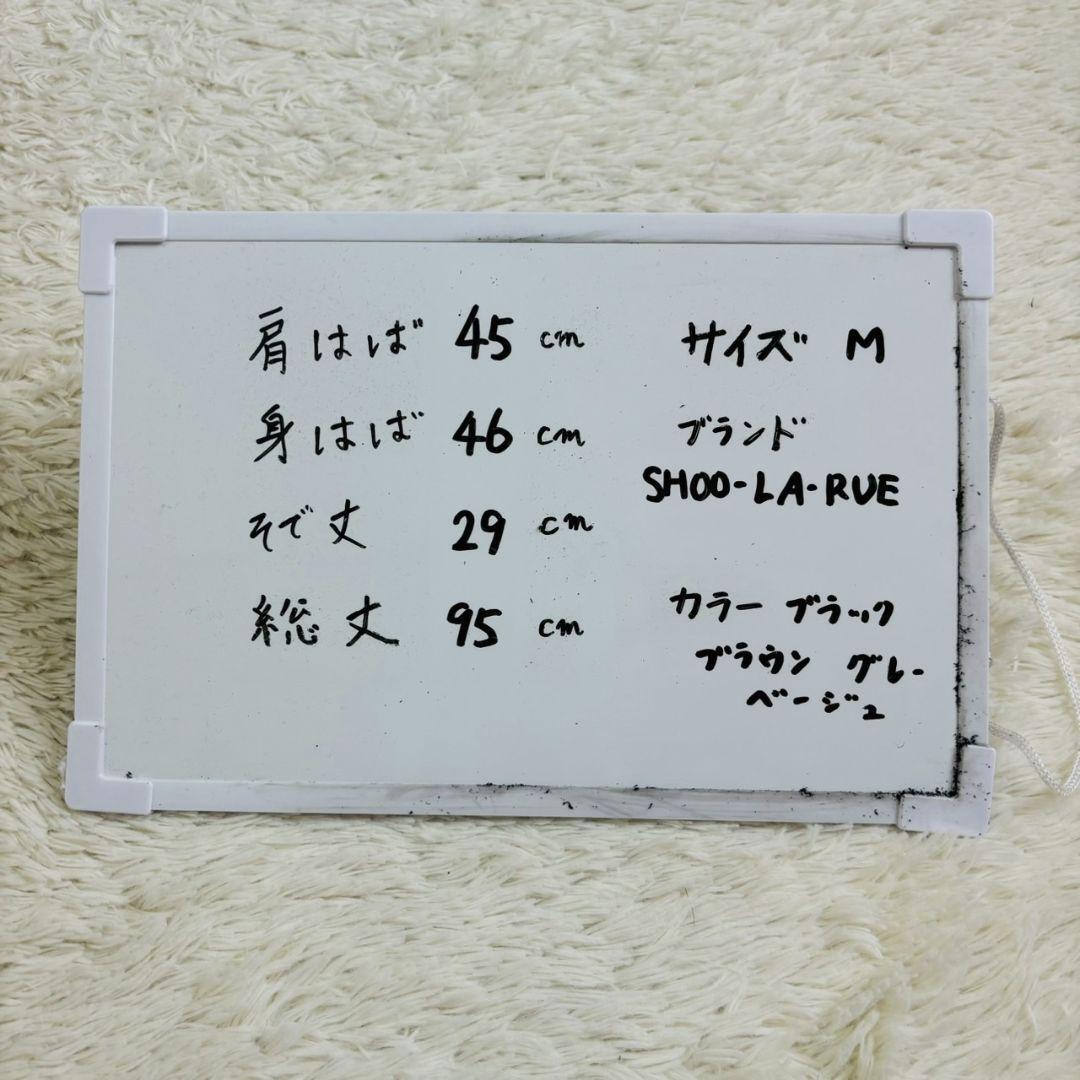 肩はば 45 cm
身はば 46 cm
そで丈 29 cm
総丈 95 cm
サイズ M
ブランド
SHOO-LA-RUE
カラー ブラック
ブラウン グレー
ベージュ